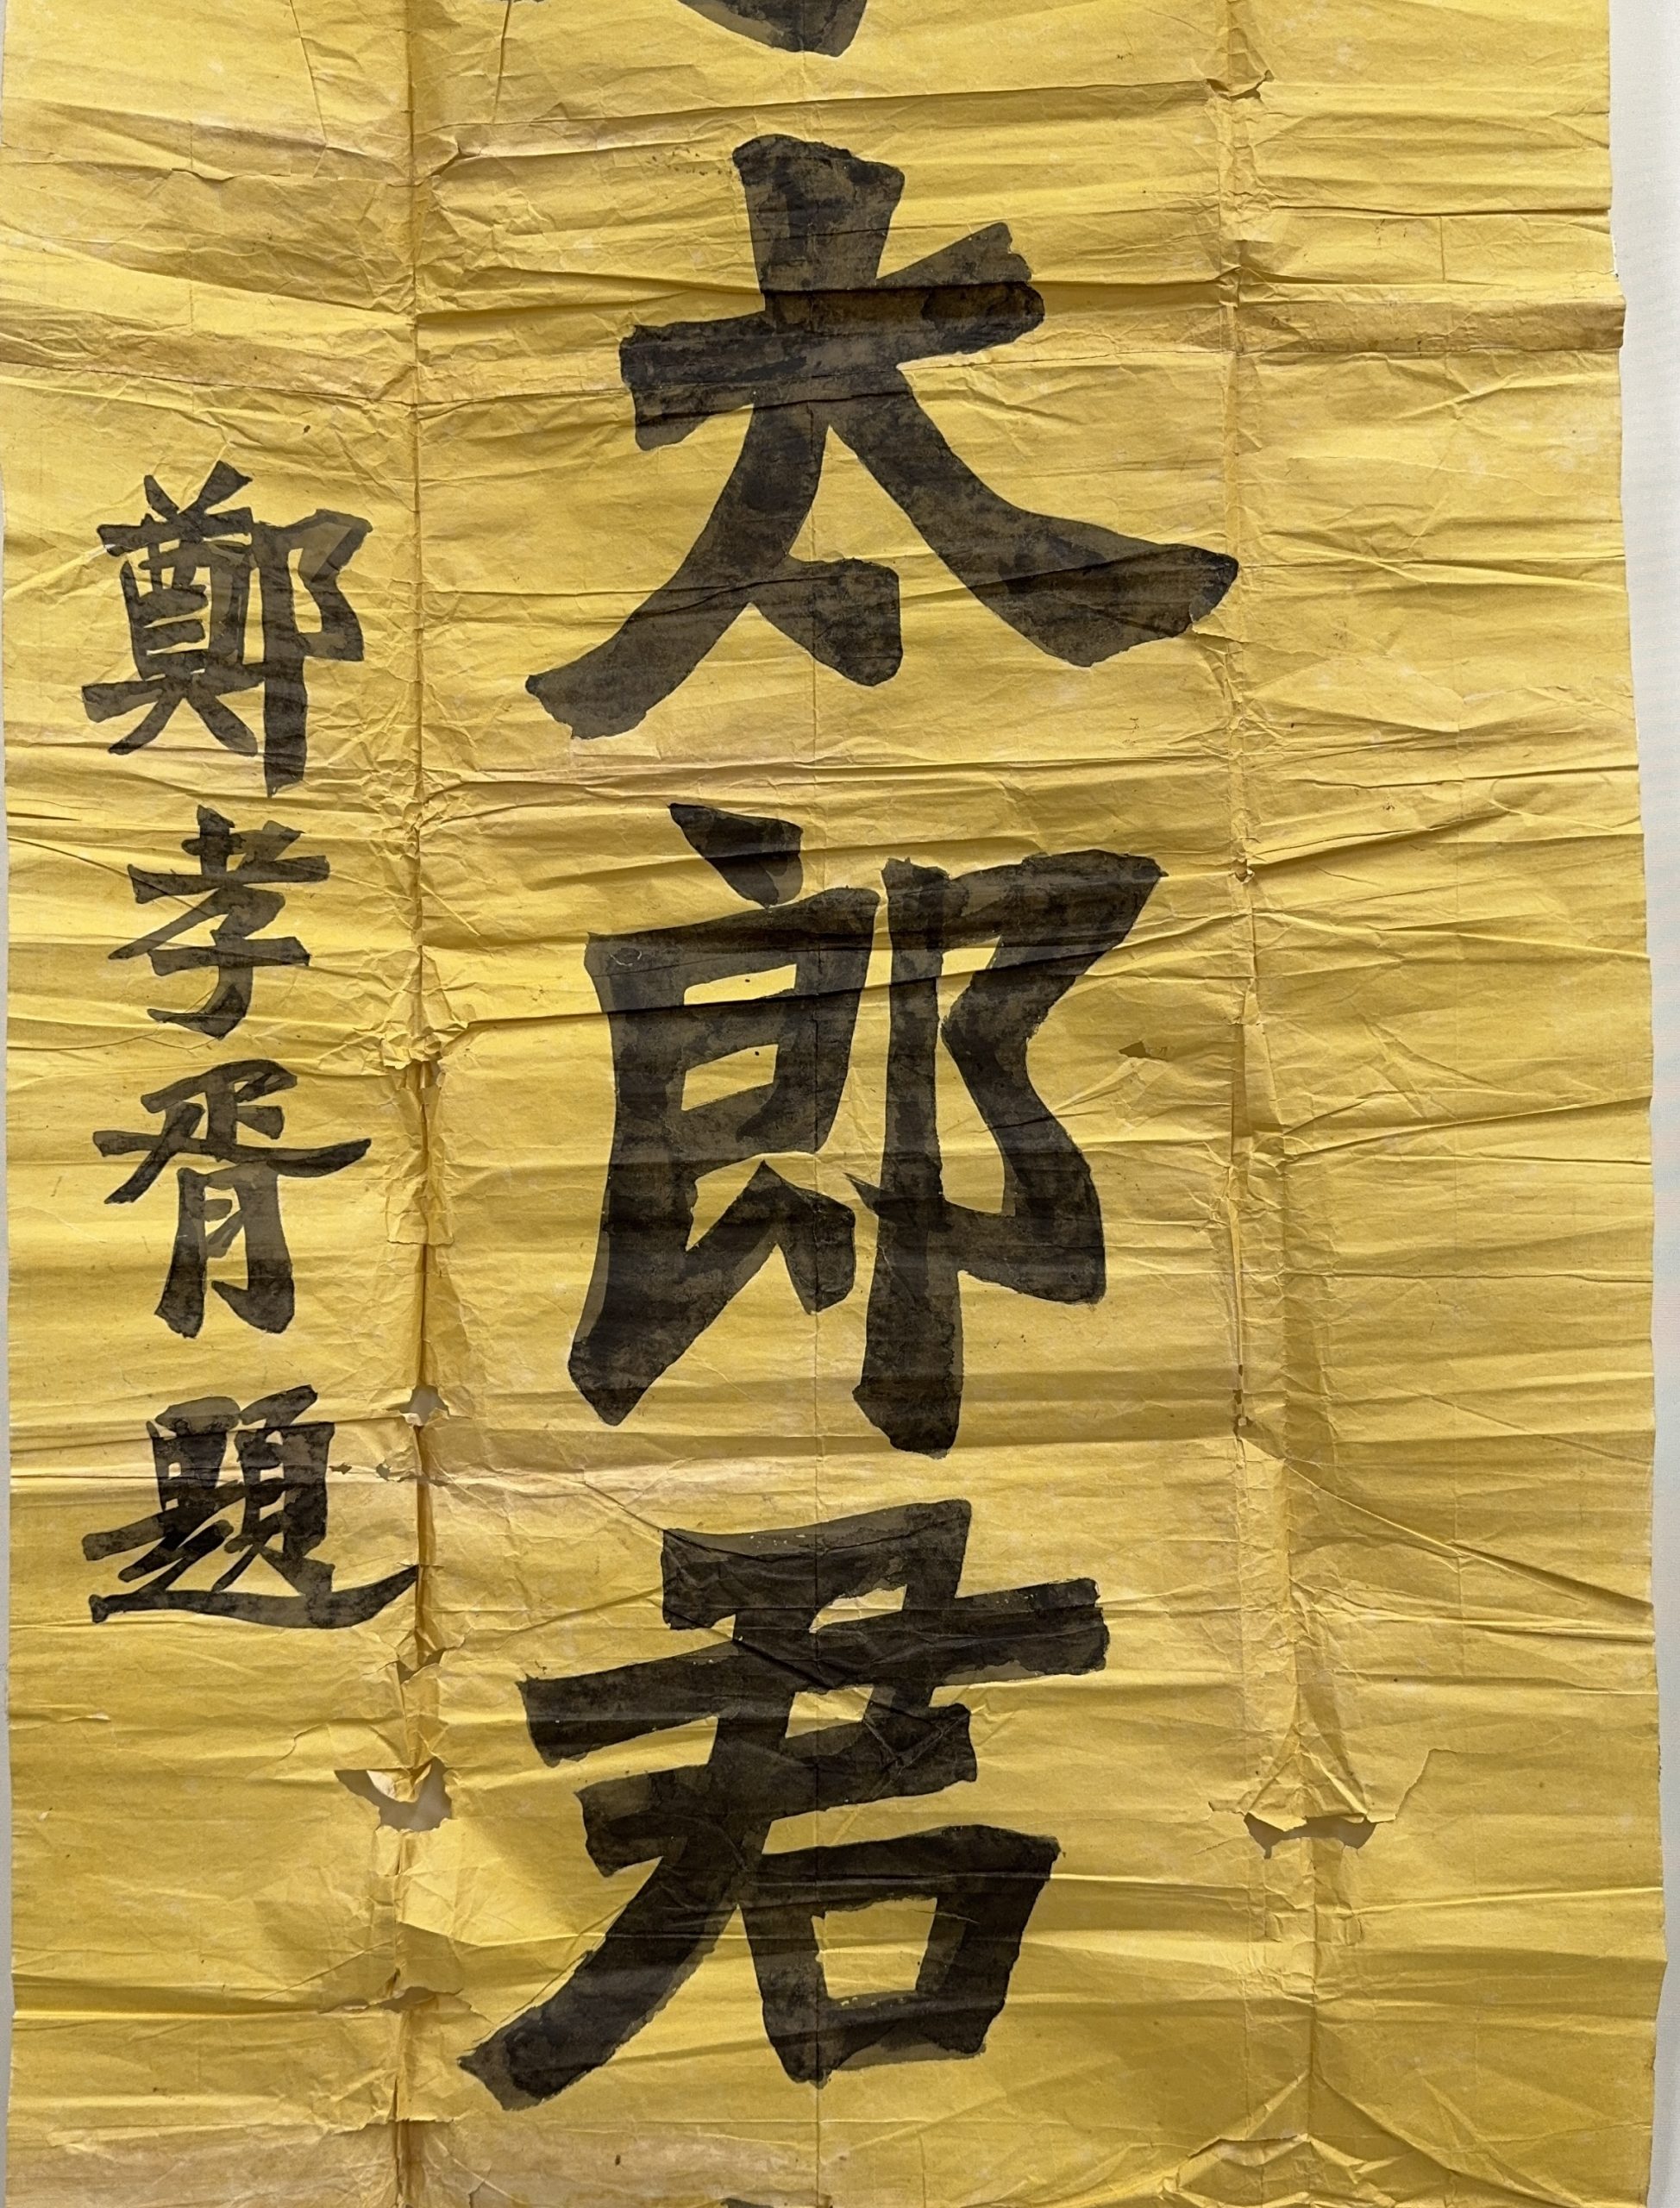 太郎君
鄭孝胥題